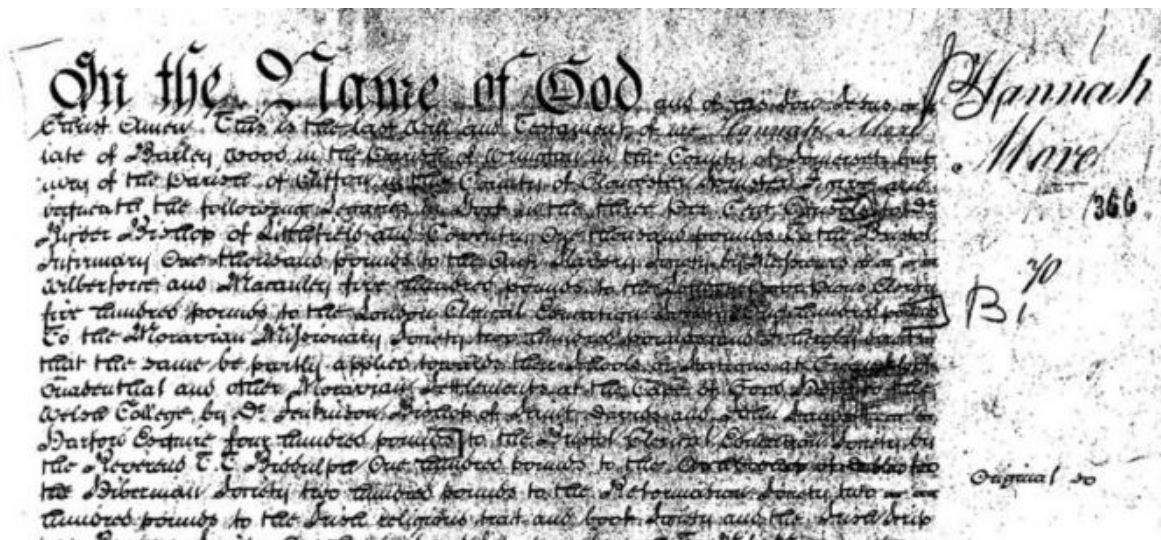 In the Name of God and of his Son Jesus
Christ Amen. This is the last Will and Testament of me Hannah More
late of Barley Wood in the Parish of Wrington in the County of Somerset but
now of the Parish of Clifton in the County of Gloucester and
bequeath the following Legacies in the three per Cent
Ryder Bishop of Litchfield and Coventry One thousand pounds to the Bristol
Infirmary One thousand pounds to the Anti Slavery Society by Messieurs
Wilberforce and Macauley five hundred pounds to the Pious Clergy
five hundred pounds to the London Clerical Education Society hundred pounds
To the Moravian Missionary Society two hundred pounds and I hereby
that the same be partly applied towards the Schools or Stations at
Gnadenthal and other Moravian Settlements at the Cape of Good Hope to the
Welsh College by Dr. Jenkinson Bishop of Saint Davids and
Harford Esquire four hundred pounds to the Bristol Clerical Education Society by
the Reverend T. T. Biddulph One hundred pounds to the
the Hibernian Society two hundred pounds to the Reformation Society two
hundred pounds to the Irish religious tract and book Society and the Irish
Hannah
More
366
70
B 1
Original so